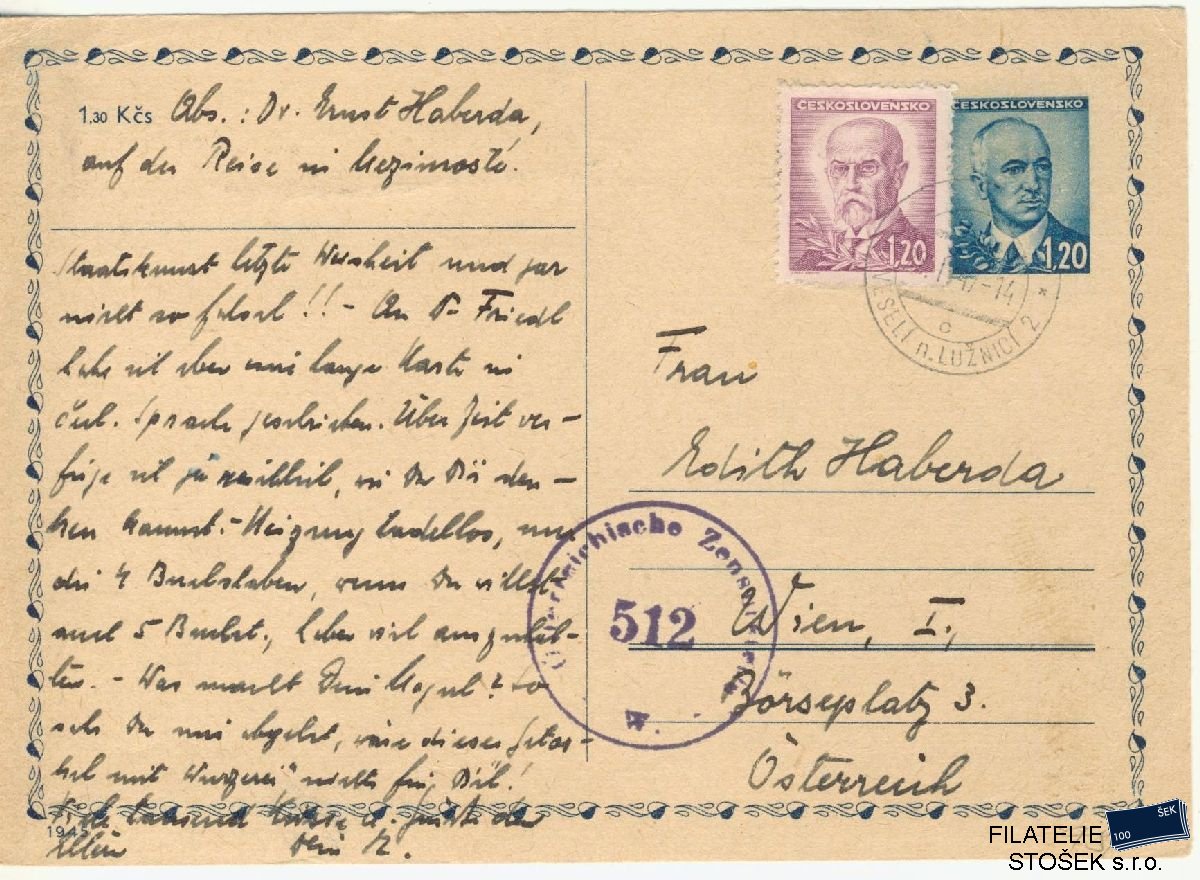 1.30 Kčs Abs.: Dr. Ernst Haberda,
auf der Reise in Mezimostí.
Staatskunst letzte Weisheit und gar
nicht so falsch!! - An Fr. Friedl
habe ich eben eine lange Karte in
čech. Sprache geschrieben. Über Zeit ver-
füge ich ja reichlich, wie Du Dir den-
ken kannst. - Heizung tadellos, nur
die 4 Buchstaben, wenn Du willst
auch 5 Buchst., haben viel auszuhal-
ten. - Was macht Dein
sehr Du mir abgehst, wäre dieses
mit nichts für Dich!
Viele tausend Küsse u. grüße die
Dein
1945
ČESKOSLOVENSKO
1,20
ČESKOSLOVENSKO
1,20
VESELÍ n. LUŽNICÍ 2
Frau
Edith Haberda
Wien, I.,
Börseplatz 3.
Österreich
Österreichische Zensurstelle
512
W.
FILATELIE
STOŠEK s.r.o.
100
ŠEK